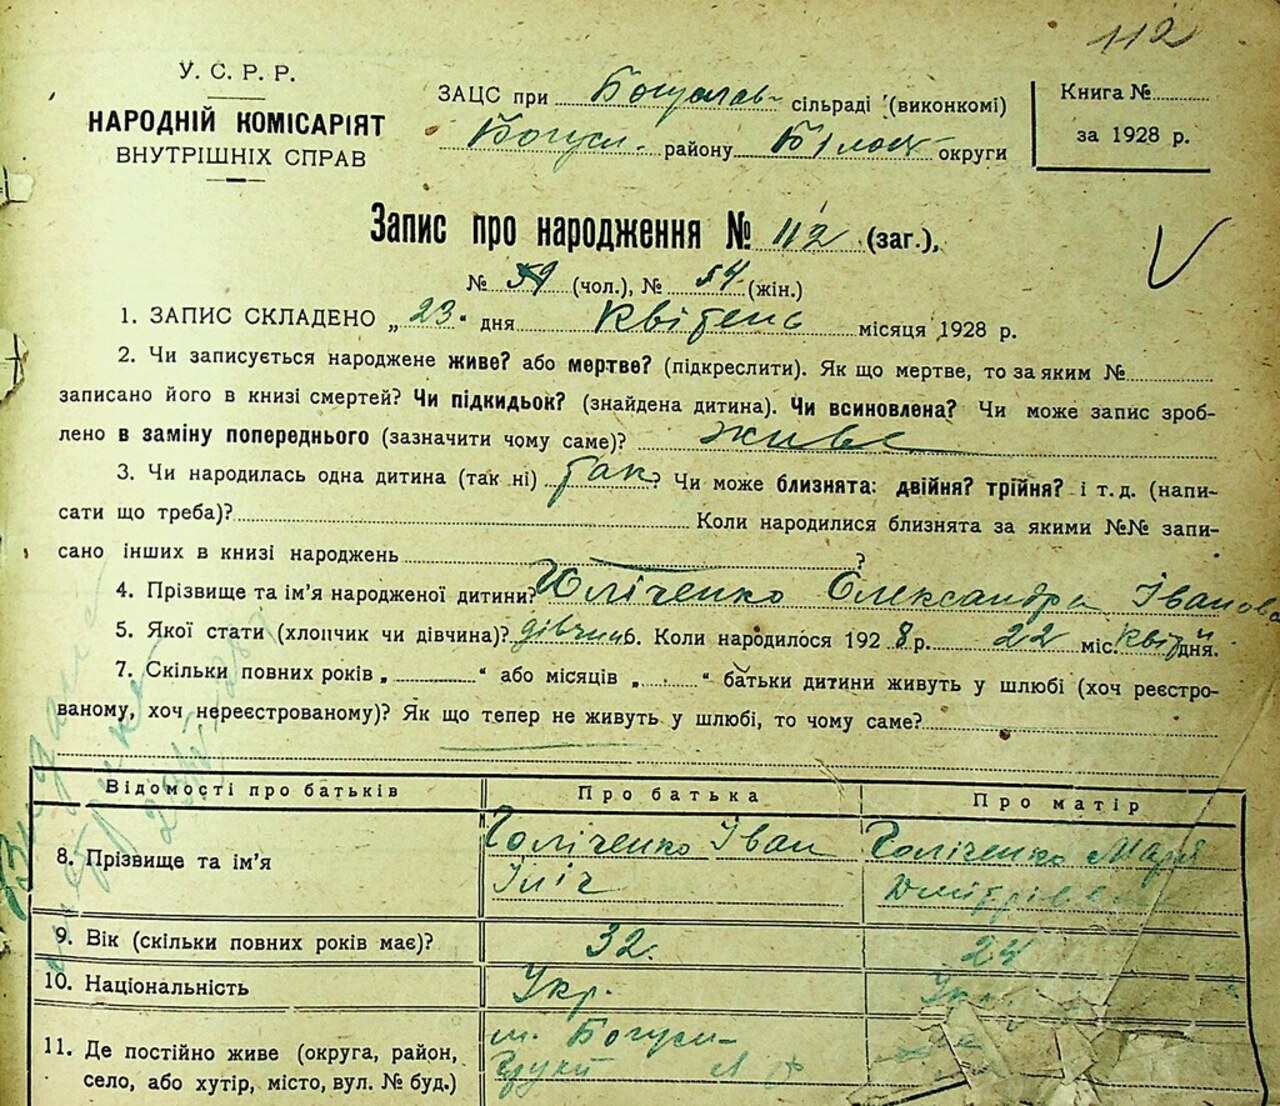 112
У. С. Р. Р.
НАРОДНІЙ КОМІСАРІЯТ
ВНУТРІШНІХ СПРАВ
ЗАЦС при Богуслав- сільраді (виконкомі)
Богусл. району Білоц округи
Книга №
за 1928 р.
Запис про народження № 112 (заг.),
№ 59 (чол.), № 54 (жін.)
1. ЗАПИС СКЛАДЕНО „23" дня Квітень місяця 1928 р.
2. Чи записується народжене живе? або мертве? (підкреслити). Як що мертве, то за яким №
записано його в книзі смертей? Чи підкидьок? (знайдена дитина). Чи всиновлена? Чи може запис зроб-
лено в заміну попереднього (зазначити чому саме)? живе
3. Чи народилась одна дитина (так ні) так? Чи може близнята: двійня? трійня? і т. д. (напи-
сати що треба)? Коли народилися близнята за якими №№ запи-
сано інших в книзі народжень ?
4. Прізвище та ім'я народженої дитини? Голіченко Олександра Іванова
5. Якої стати (хлопчик чи дівчина)? дівчин 6. Коли народилося 1928 р. 22 міс. квіт дня.
7. Скільки повних років „ " або місяців „ " батьки дитини живуть у шлюбі (хоч реєстро-
ваному, хоч нереєстрованому)? Як що тепер не живуть у шлюбі, то чому саме?
Відомості про батьків
Про батька
Про матір
8. Прізвище та ім'я
Голіченко Іван
Іліч
Голіченко Марія
Дмитрівна
9. Вік (скільки повних років має)?
32.
24
10. Національність
Укр.
Укр.
11. Де постійно живе (округа, район,
село, або хутір, місто, вул. № буд.)
м. Богусл-